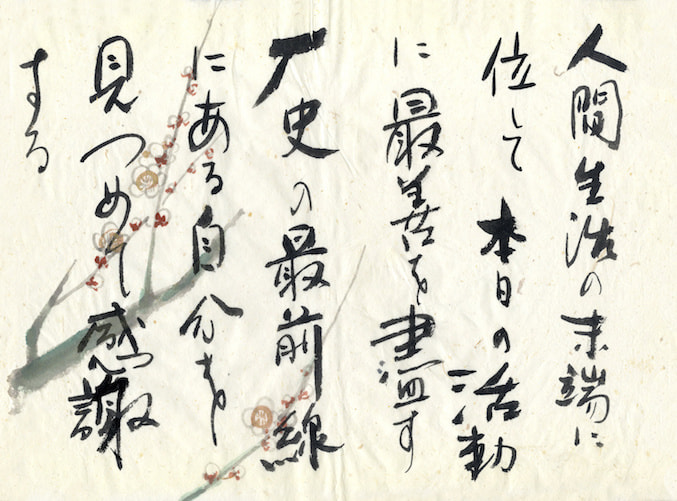 人間生活の末端に
位して本日の活動
に最善を盡す
歴史の最前線
にある自分を
見つめて感謝
する